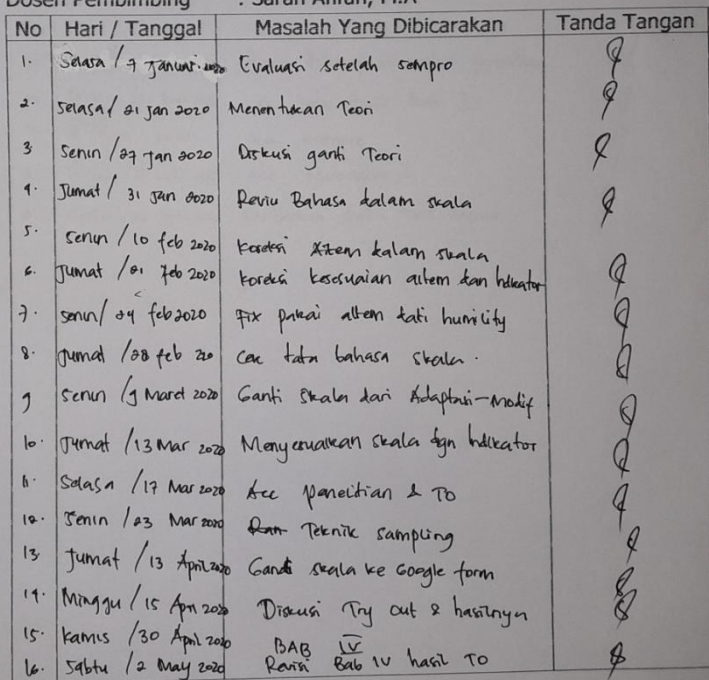 Dosen Pembimbing : Sarah Afifah, M.A
No Hari / Tanggal Masalah Yang Dibicarakan Tanda Tangan
1. Selasa / 7 Januari 2020 Evaluasi setelah sempro
2. Selasa / 21 Jan 2020 Menentukan Teori
3 Senin / 27 Jan 2020 Diskusi ganti Teori
4. Jumat / 31 Jan 2020 Reviu Bahasa dalam skala
5. Senin / 10 feb 2020 koreksi Aitem dalam skala
6. Jumat / 21 feb 2020 koreksi kesesuaian aitem dan Indikator
7. Senin / 24 feb 2020 Fix pakai aitem dati humility
8. Jumat / 28 feb 220 Cek tata bahasa skala.
9 Senin / 9 Maret 2020 Ganti skala dari Adaptasi-Modif
10. Jumat / 13 Mar 2020 Menyesuaikan skala dgn Indikator
11. Selasa / 17 Mar 2020 Acc penelitian & TO
12. Senin / 23 Mar 2020 Teknik sampling
13. Jumat / 13 April 2020 Ganti skala ke Google form
14. Minggu / 15 Apri 2020 Diskusi Try out & hasilnya
15. Kamis / 30 April 2020 BAB IV
16. Sabtu / 2 May 2020 Revisi Bab IV hasil TO